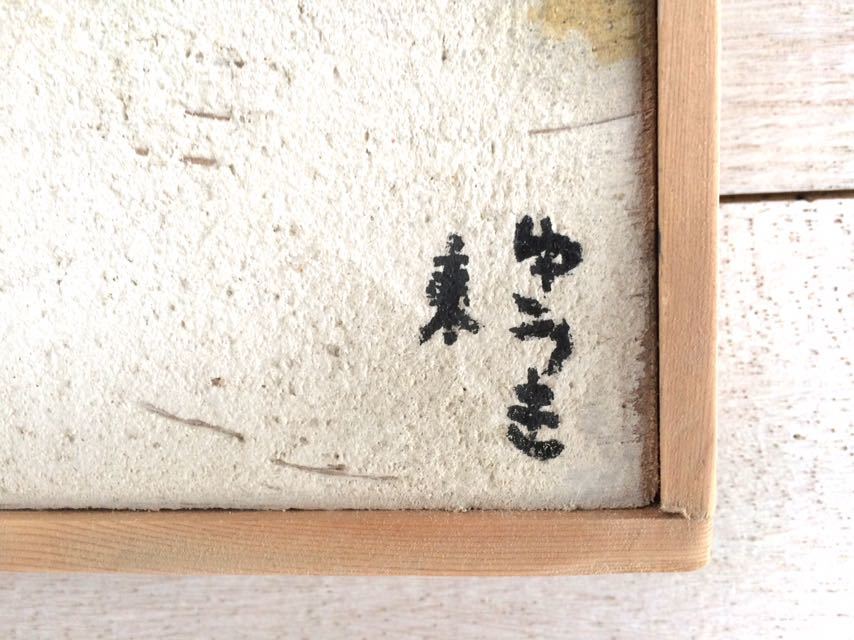 ゆうき
東